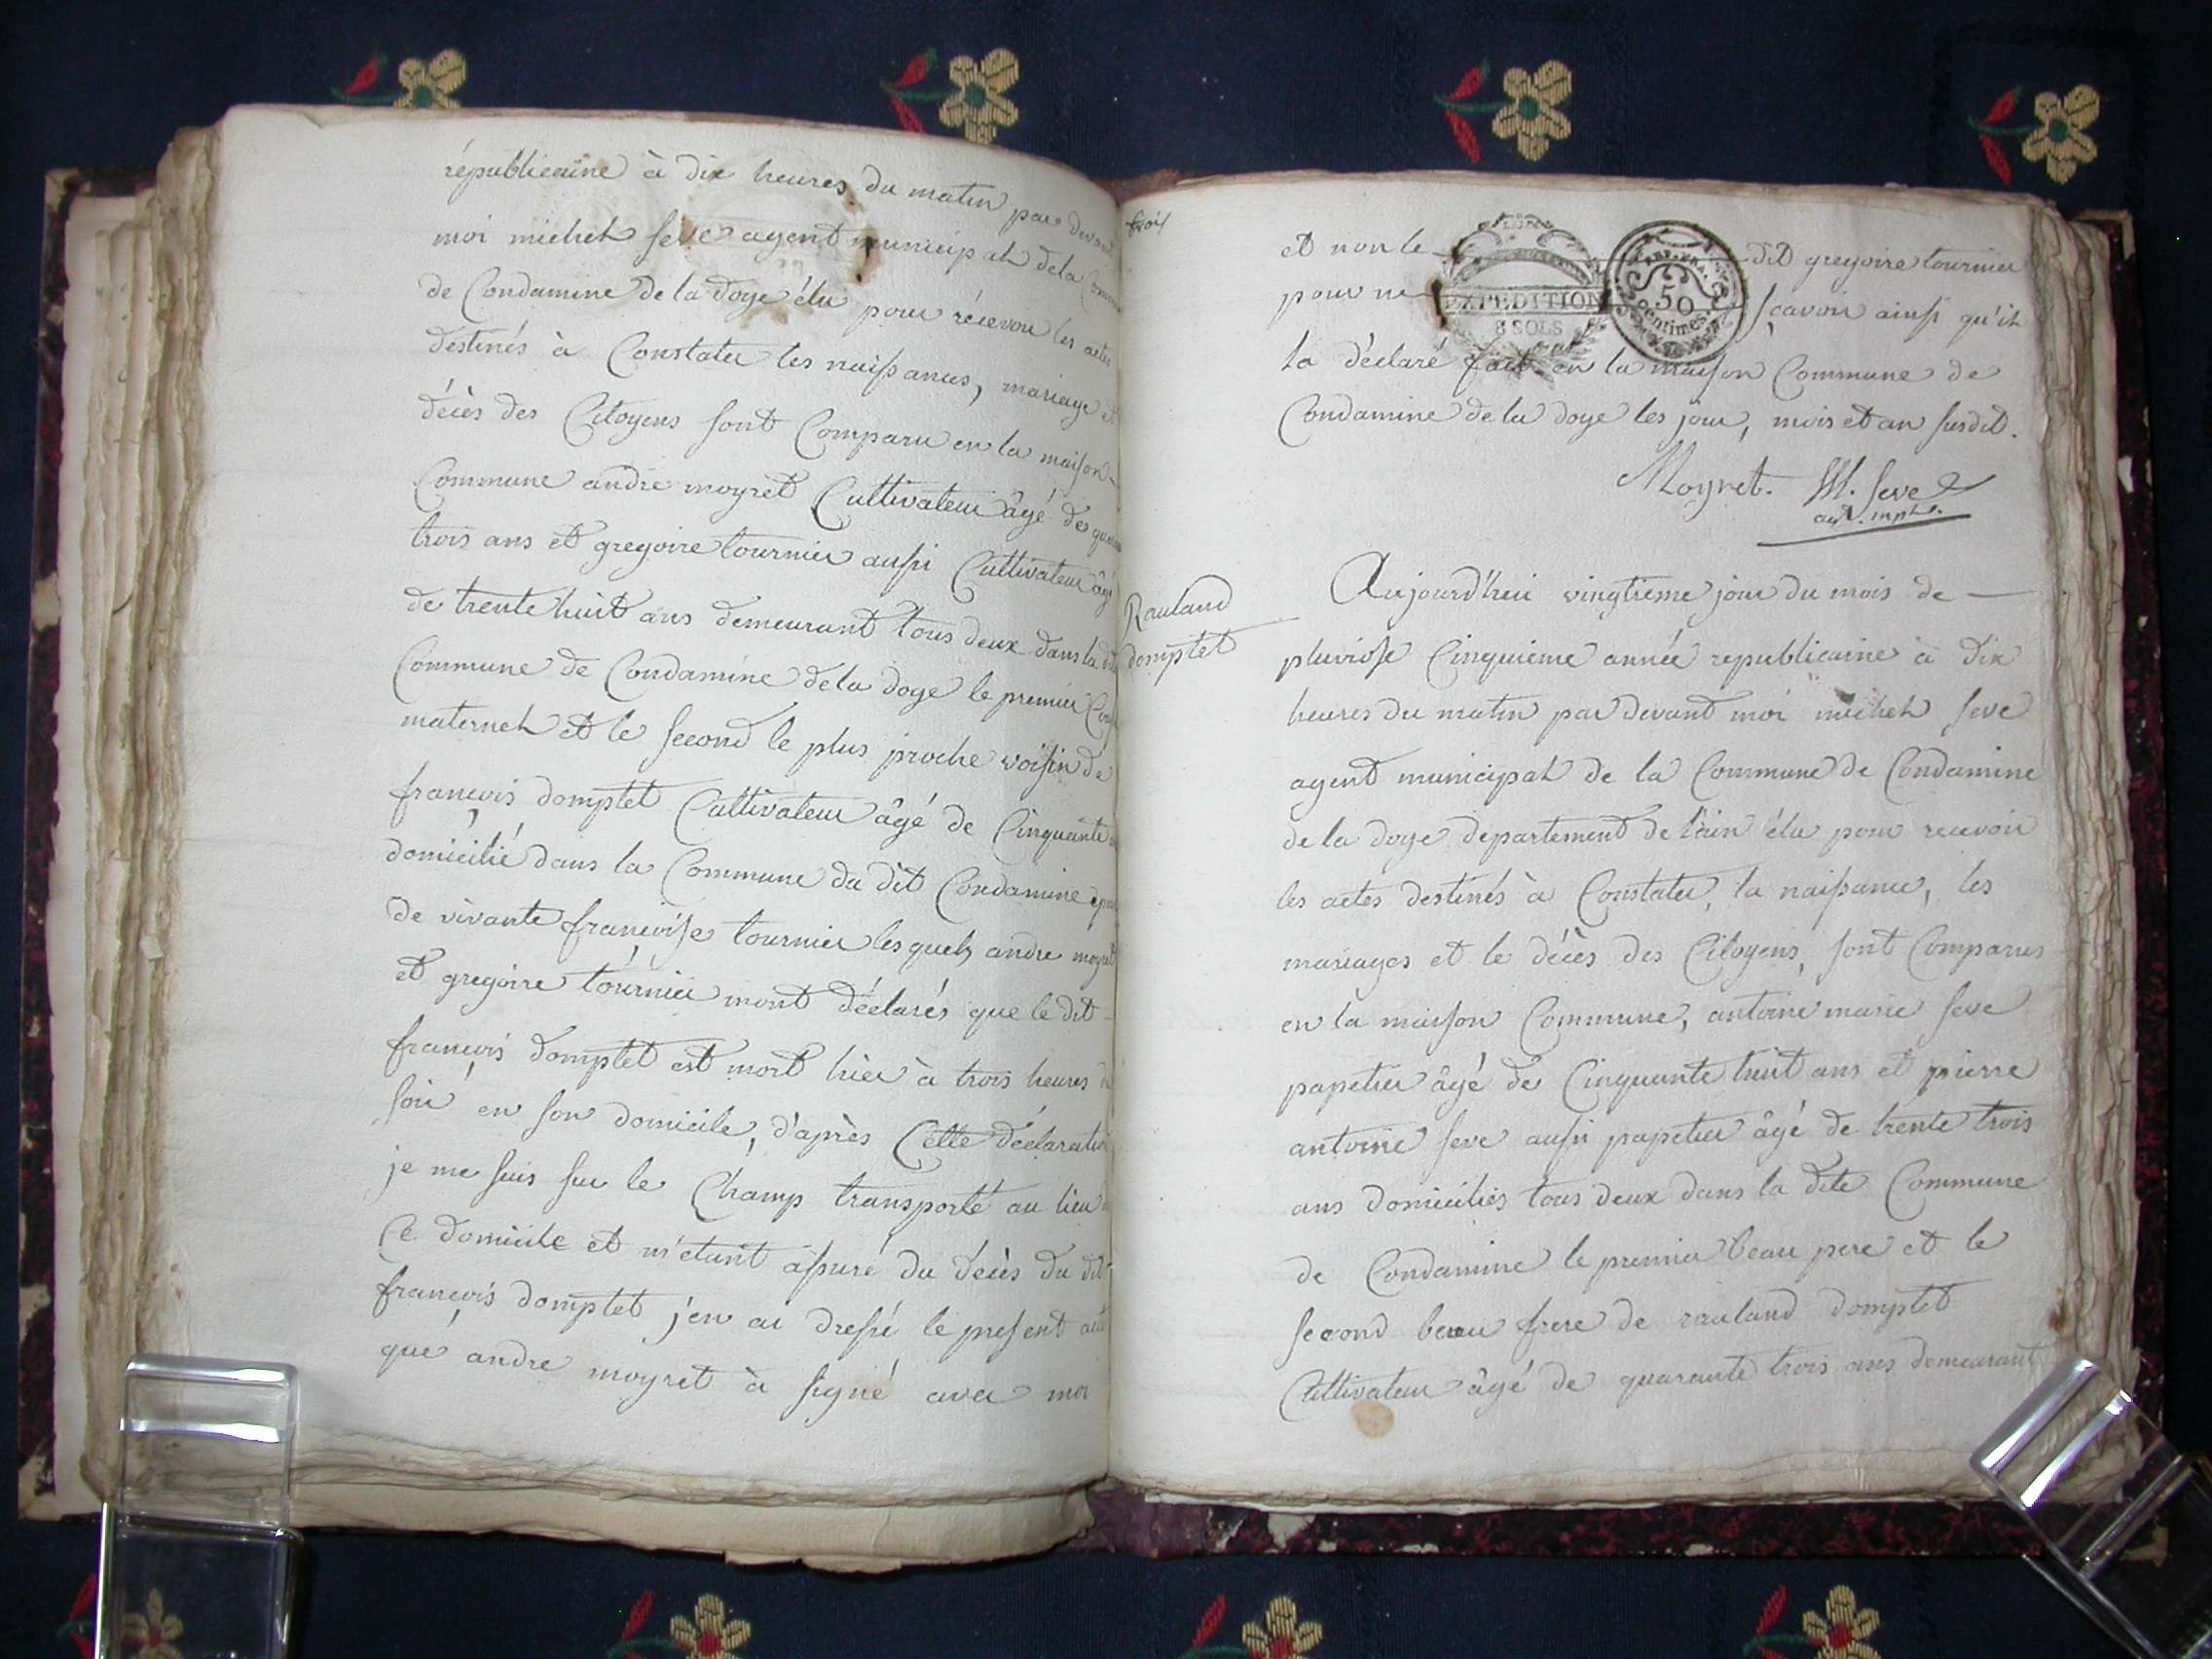 républicaine à dix heures du matin par devant
moi michel seve agent municipal dela Commune
de Condamine de la doye élu pour récevoir les actes
destinés à Constater les naissances, mariage et
décès des Citoyens sont Comparu en la maison
Commune andré moyret Cultivateur âgé des quarante
trois ans et gregoire tournier aussi Cultivateur âgé
de trente huit ans demeurant tous deux dans la dite
Commune de Condamine dela doye le premier
maternel et le second le plus proche voisin de
françois domptet Cultivateur âgé de Cinquante
domicilié dans la Commune du dit Condamine
de vivante françoise tournier lesquels andre moyret
et gregoire tournier mont déclarés que le dit
françois domptet est mort hier à trois heures du
soir en son domicile, d'après Cette déclaration
je me suis sur le Champ transporté au lieu
Ce domicile et m'étant assuré du décès du dit
françois domptet j'en ai dressé le present acte
que andre moyret à signé avec moi
trois
et non le dit gregoire tournier
EXPEDITION
8 SOLS
REP. FRA.
50
Centimes
pour ne sçavoir ainsi qu'il
la déclaré fait en la maison Commune de
Condamine de la doye les jour, mois et an susdit.
Moyret. M. Seve
agt. mpl.
Rauland
domptet
Aujourd'hui vingtieme jour du mois de
pluviose Cinquieme année republicaine à dix
heures du matin par devant moi michel seve
agent municipal de la Commune de Condamine
de la doye departement de l'ain élu pour recevoir
les actes destinés à Constater, la naissance, les
mariages et le décès des Citoyens, sont Comparus
en la maison Commune, antoine marie seve
papetier âgé de Cinquante huit ans et pierre
antoine seve aussi papetier âgé de trente trois
ans domiciliés tous deux dans la dite Commune
de Condamine le premier beau pere et le
second beau frere de rauland domptet
Cultivateur âgé de quarante trois ans demeurant